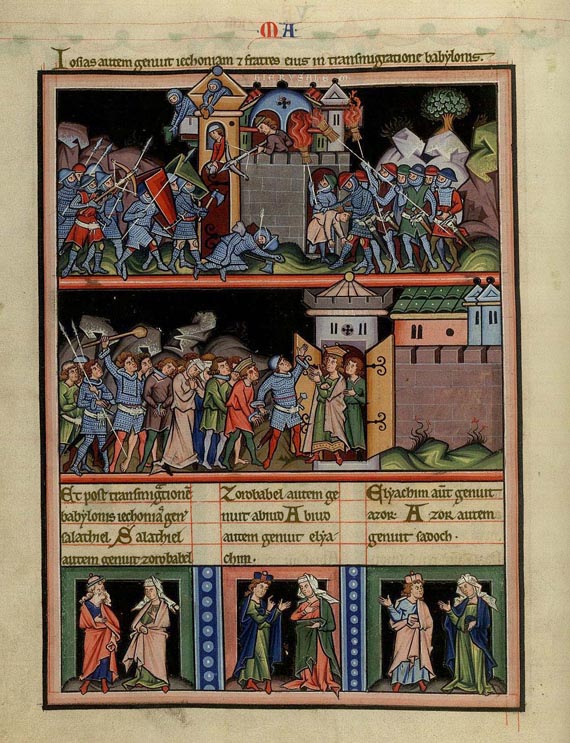 MA
Iosias autem genuit iechoniam ⁊ fratres eius in transmigratione babylonis.
Et post transmig̃tionẽ
babylonis iechoniã geñ
salathiel. Salathiel
autem genuit zorobabel
Zorobabel autem ge
nuit abiud Abiud
autem genuit elya
chim.
Elyachim aũt genuit
azor. Azor autem
genuit sadoch.